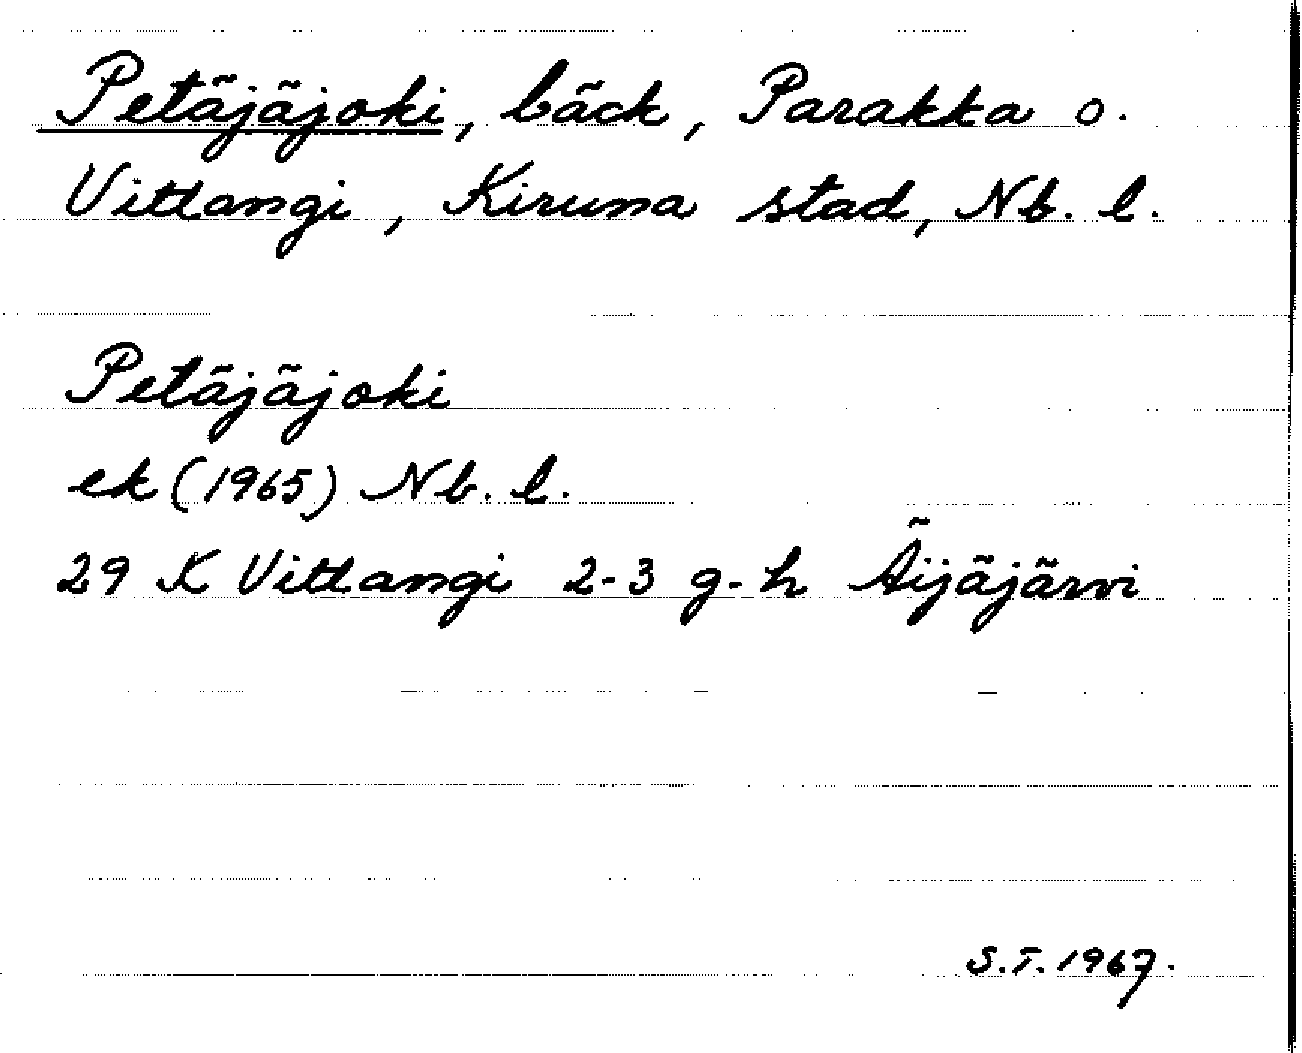 Petäjäjoki, bäck, Parakka o.
Vittangi, Kiruna stad, Nb. l.
Petäjäjoki
ek (1965) Nb. l.
29 K Vittangi 2-3 g-h Äijäjärvi
S.T. 1967.